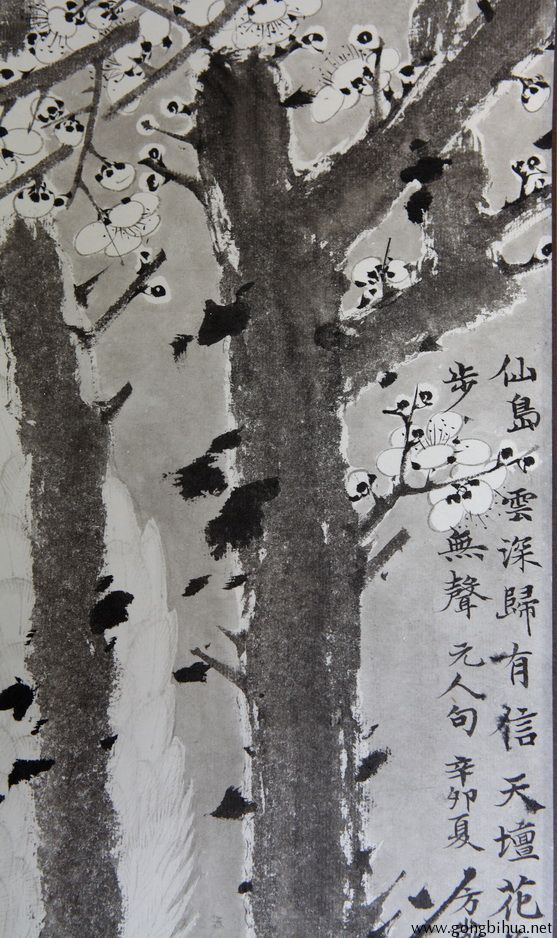 仙島雲深歸有信天壇花
步無聲 元人句 辛卯夏 方
www.gongbihua.net